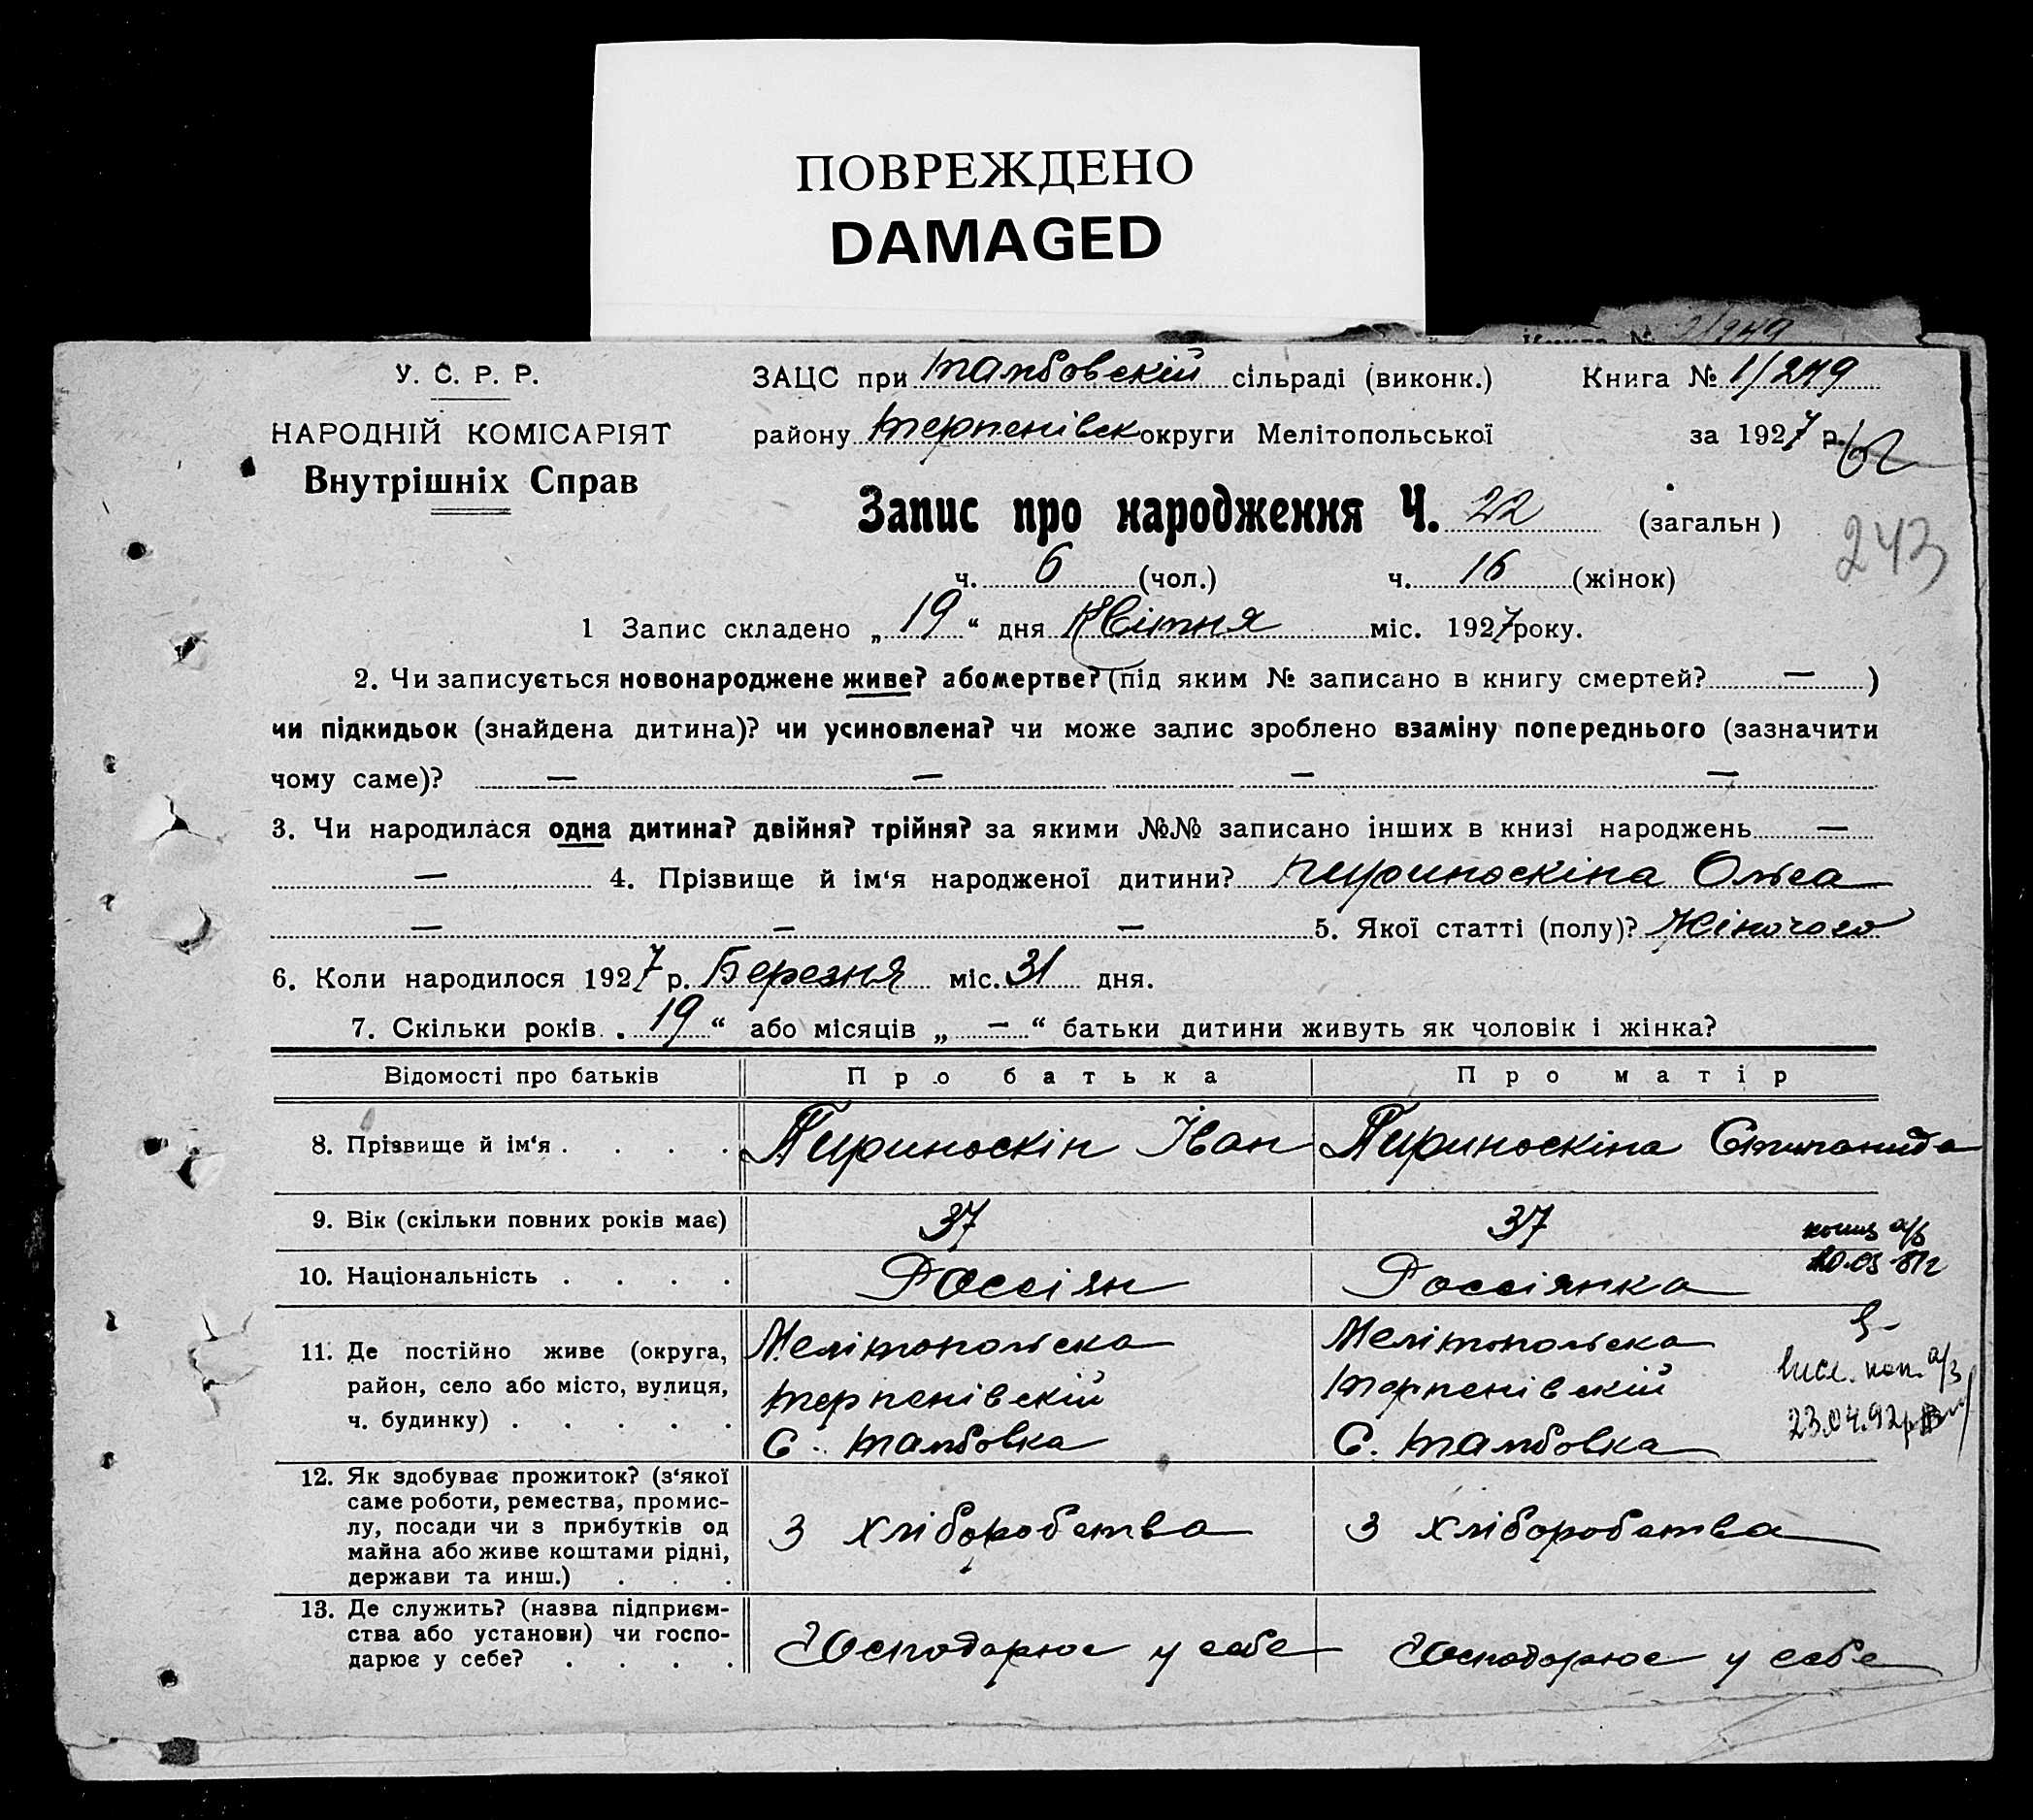 ПОВРЕЖДЕНО
DAMAGED
У. С. Р. Р.
НАРОДНІЙ КОМІСАРІЯТ
Внутрішніх Справ
ЗАЦС при Тамбовскій сільраді (виконк.) Книга № 1/249
району Терпенівск округи Мелітопольської за 1927 р.
Запис про народження Ч. 22 (загальн )
243
ч. 6 (чол.) ч. 16 (жінок)
1 Запис складено „ 19 “ дня Квітня міс. 1927 року.
2. Чи записується новонароджене живе? або мертве? (під яким № записано в книгу смертей? — )
чи підкидьок (знайдена дитина)? чи усиновлена? чи може запис зроблено взаміну попереднього (зазначити
чому саме)? — — — —
3. Чи народилася одна дитина? двійня? трійня? за якими №№ записано інших в книзі народжень —
— 4. Прізвище й ім‘я народженої дитини? Пириноскіна Ольга
— — — 5. Якої статті (полу)? Жіночого
6. Коли народилося 1927 р. Березня міс. 31 дня.
7. Скільки років . 19 “ або місяців „ — “ батьки дитини живуть як чоловік і жінка?
Відомості про батьків Про батька Про матір
8. Прізвище й ім‘я . . . . Пириноскін Іван Пириноскіна Стипанида
9. Вік (скільки повних років має) 37 37
10. Національність . . . . Россіян Россіянка
11. Де постійно живе (округа, Мелітопольска Мелітопольска
район, село або місто, вулиця, Терпенівскій Терпенівскій
ч. будинку) . . . . . С. Тамбовка С. Тамбовка
23.04.92р
12. Як здобуває прожиток? (з‘якої
саме роботи, ремества, промис-
лу, посади чи з прибутків од З хліборобства З хліборобства
майна або живе коштами рідні,
держави та инш.) . . .
13. Де служить? (назва підприєм-
ства або установи) чи госпо- Господарює у себе Господарює у себе
дарює у себе? . . . .